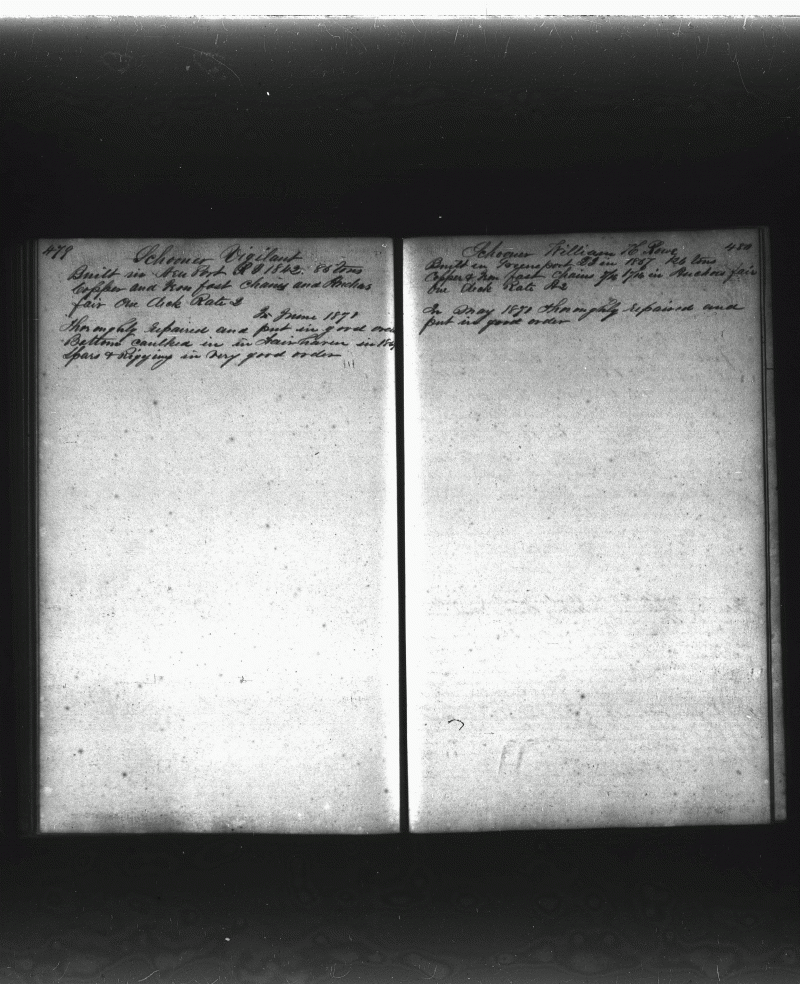 479
Schooner Vigilant
Built in New Port R I 1842. 80 tons
Copper and Iron fast Chains and Anchors
fair One Deck Rate 2
In June 1870
Thoroughly repaired and put in good order
Bottom caulked in in Fairhaven in
Spars & Rigging in very good order
480
Schooner William H Rowe
Built in in 1857 126 tons
Copper & Iron fast Chains in Anchors fair
One Deck Rate A2
In May 1870 thoroughly repaired and
put in good order